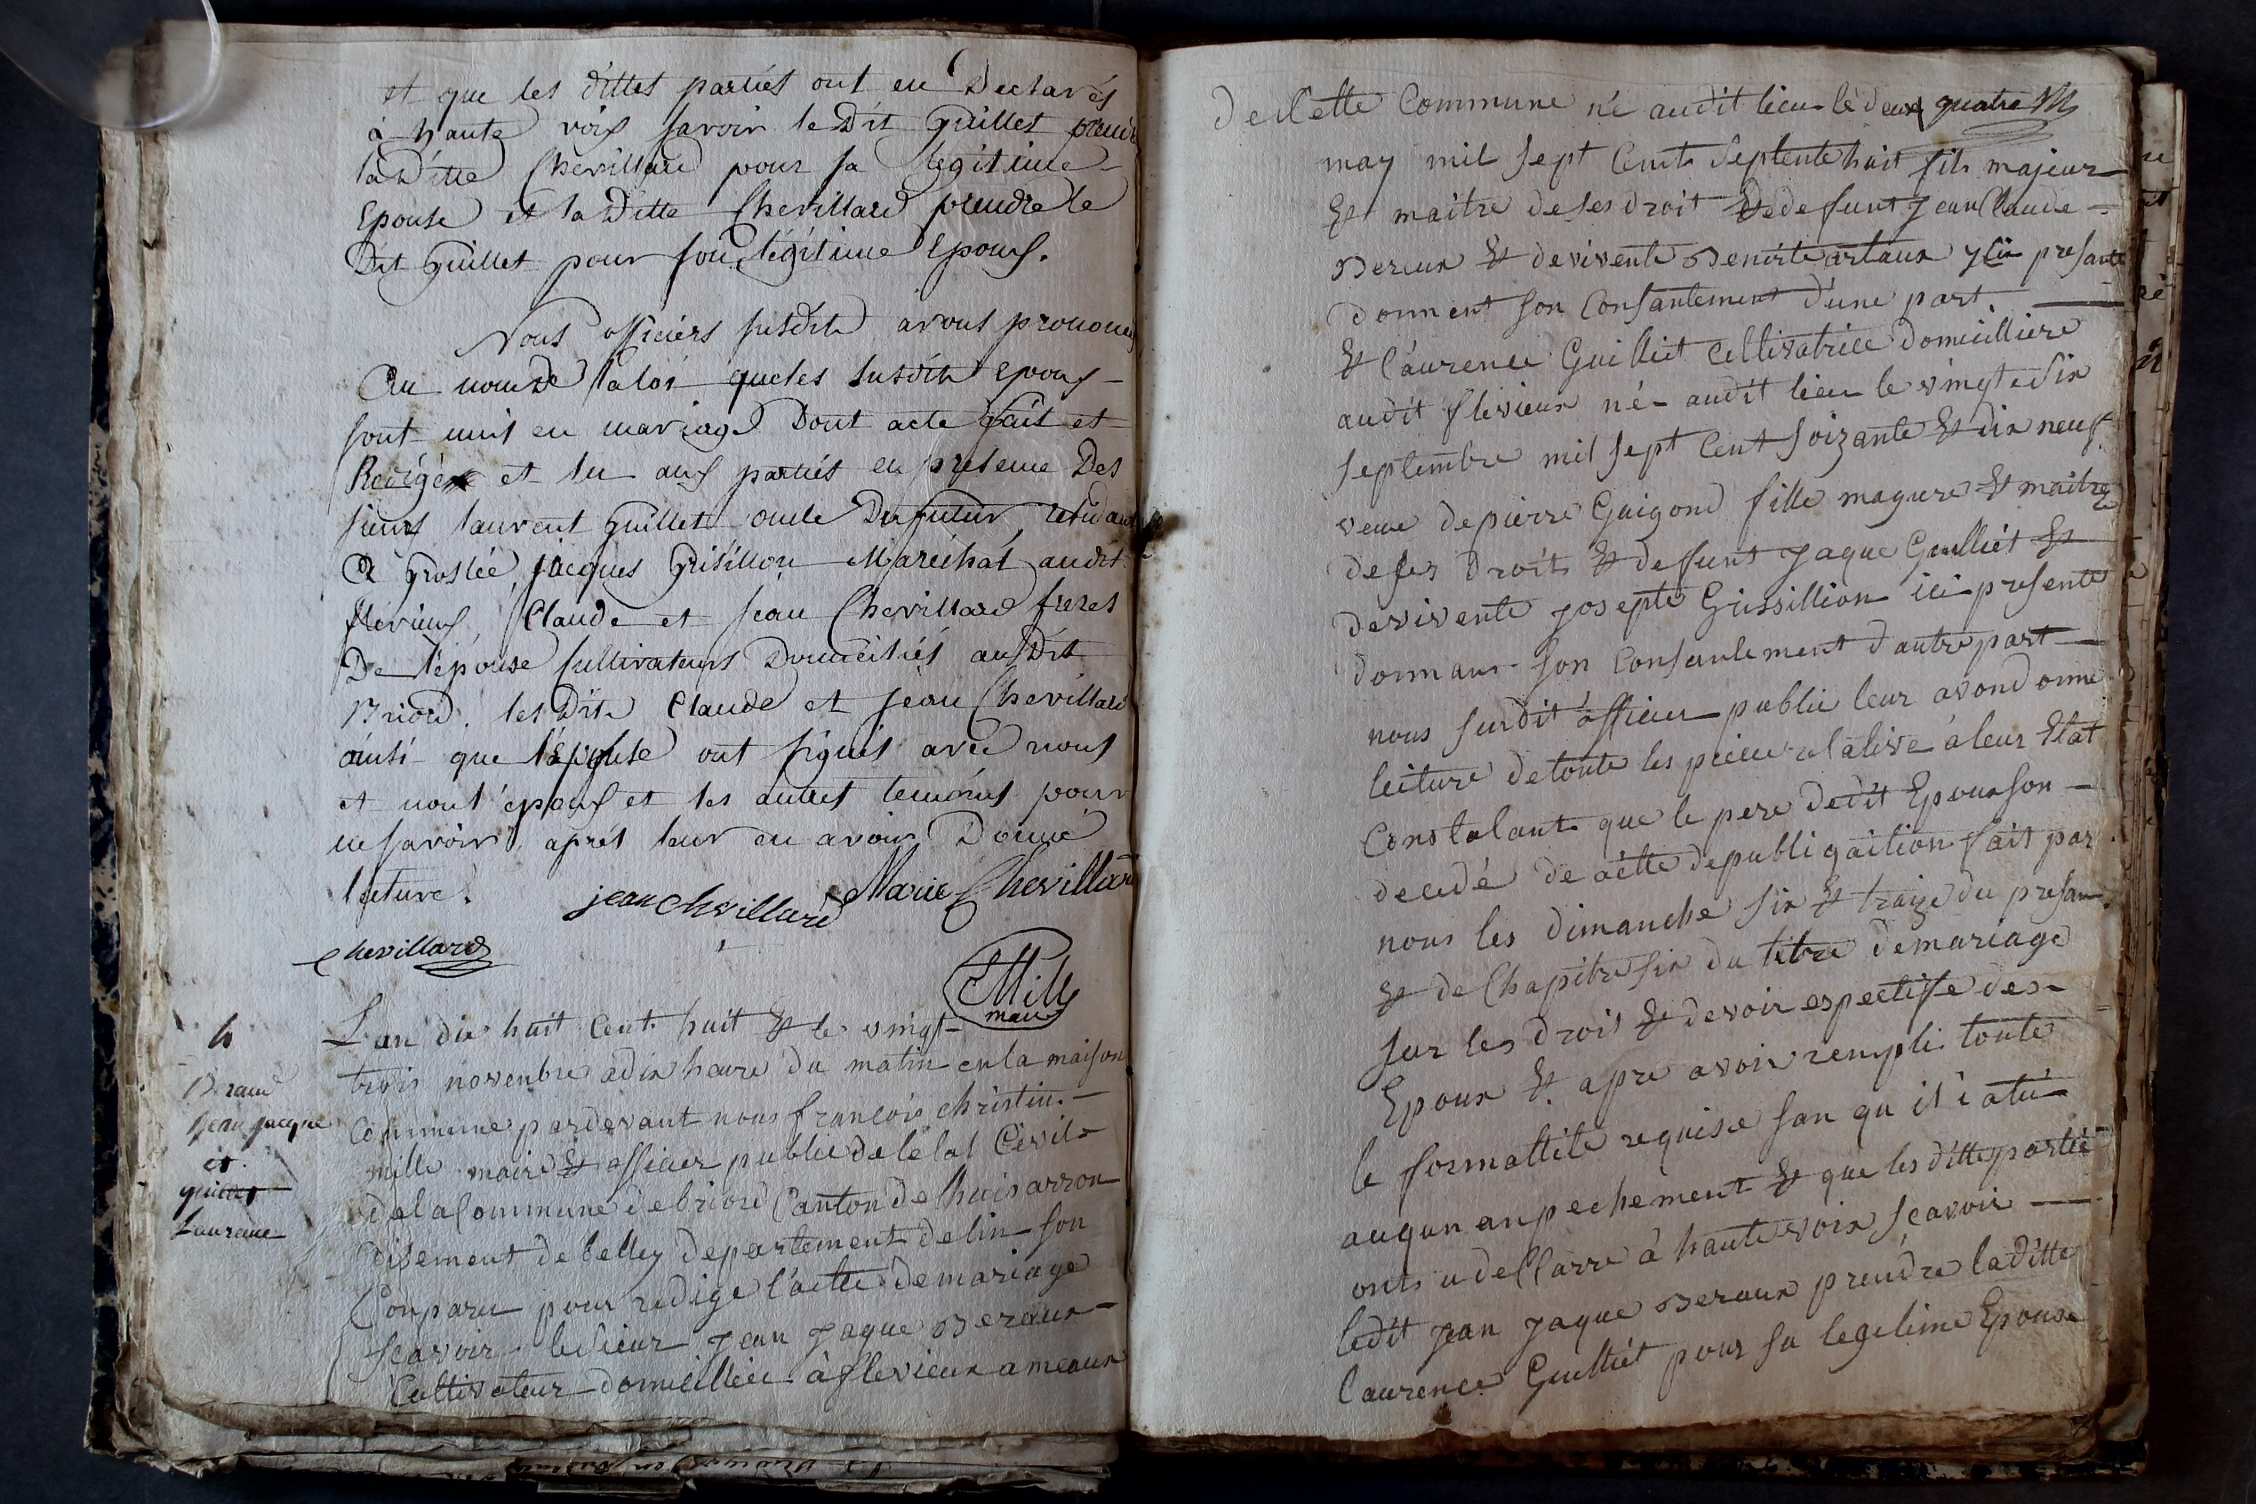 et que les dittes partiés ont eu Declarés
à haute voix savoir le Dit Guillet prendre
la Ditte Chevillard pour sa légitime
Epouse et la Ditte Chevillard prendre le
Dit Guillet pour son légitime Epoux.
Nous officiérs susdits avons prononcés
Au nom de la loi que les susdits epoux
sont unis en mariage Dont acte fait et
Redigé et lu aux partiés en presence Des
sieurs laurent Guillet oncle Du futur, residant
à Groslée, Jacques Grisillion Maréchal audit
flévieux, Claude et Jean Chevillard freres
De l'épouse cultivateurs Domiciliés audit
Briord. les Dits Claude et Jean Chevillard
ainsi que l'épouse ont signés avec nous
et nont l'epoux et les autres temoins pour
ne savoir, aprés leur en avoir Donné
lecture.
jean chevillard Marie Chevillard
chevillard
Mille
maire
4
Beraud
Jean jacque
et
guillet
Laurence
L'an dix huit Cent huit & le vingt
trois novenbre a dix heure du matin en la maison
Commune pardevant nous françois christin
mille maire & officier public de lelat Cévil
de la Commune de briord Canton de lhuis arron
disement de belley departement de lin son
Conparu pour redige l'actte de mariage
scavoir le sieur jean jaque Beraux
Cultivateur domicilliée à flevieux ameaux
de Cette Commune né audit lieu le deux quatre M
may mil sept Cents septente huit fils majeur
& maitre de ses droit & de defunt jean Claude
Beraux & de vivente Benoite artaux ycii presante
donnent son Consantement d'une part.
& Laurence Guilliet Celtivatrice domicilliere
audit flevieux né audit lieu le vingt e six
septembre mil sept Cent soizante & dix neuf
veuve de pierre Guigond fille magure & maitre
de ses droits & defunt jaque Guilliet &
devivente josepte Grissillion ici presente
donnans son Consentement d'autre part
nous surdit officier public leur avond onne
lecture de toute les piece relative à leur Etat
Constatant que le pere dedit Epoux son
decedé de actte de publiqaition fait par
nous les dimanche six & traize du presant
& de Chapitre six du titre de mariage
sur les droit & devoir espectife des
Epoux & apre avoir rempli toute
le formallité requise san qu il i atú
auqun anpechement & que les ditte partié
onts u dellarre à haute voix scavoir
ledit jean jaque Beraux prendre laditte
Laurence Guilliét pour sa legetime Epouse